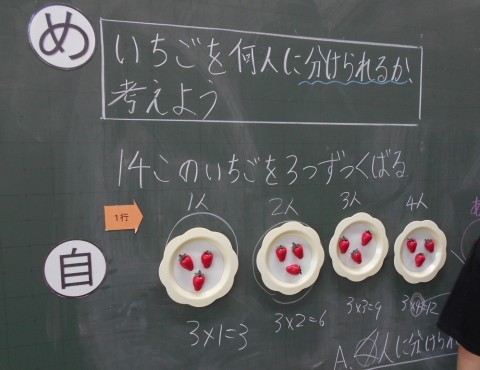 め
いちごを何人に分けられるか、
考えよう
14このいちごを3つずつくばる
1行
1人 2人 3人 4人
自
3×1=3 3×2=6 3×3=9 3×4=12
A. 4人に分けられ